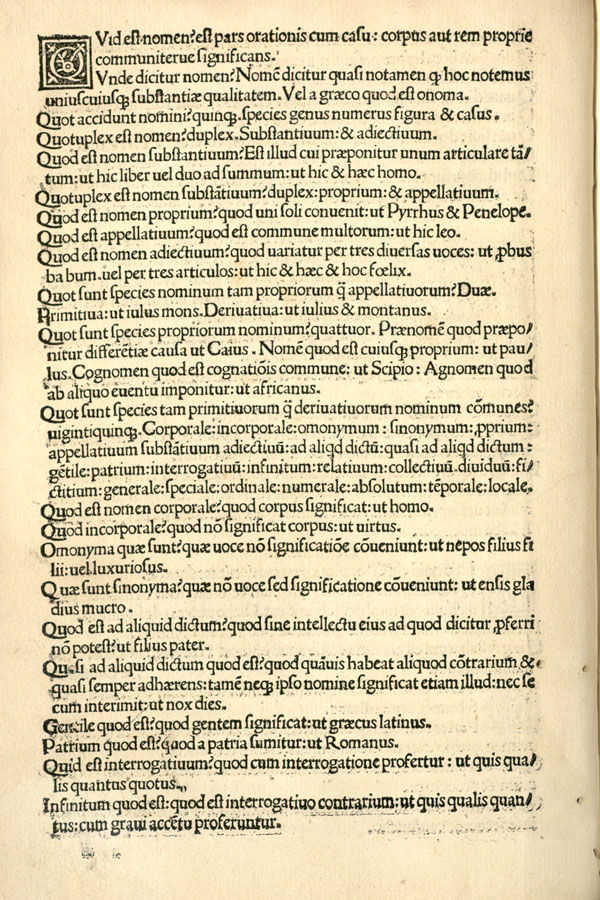 QVid est nomen? est pars orationis cum casu: corpus aut rem proprie
communiterue significans.
Vnde dicitur nomen? Nomē dicitur quasi notamen ꝙ hoc notemus
uniuscuiusqꝫ substantiæ qualitatem. Vel a græco quod est onoma.
Quot accidunt nomini? quinqꝫ. species genus numerus figura & casus.
Quotuplex est nomen? duplex. Substantiuum: & adiectiuum.
Quod est nomen substantiuum? Est illud cui præponitur unum articulare tā/
tum: ut hic liber uel duo ad summum: ut hic & hæc homo.
Quotuplex est nomen substātiuum? duplex: proprium: & appellatiuum.
Quod est nomen proprium? quod uni soli conuenit: ut Pyrrhus & Penelope.
Quod est appellatiuum? quod est commune multorum: ut hic leo.
Quod est nomen adiectiuum? quod uariatur per tres diuersas uoces: ut ꝓbus
ba bum. uel per tres articulos: ut hic & hæc & hoc fœlix.
Quot sunt species nominum tam propriorum q̄ appellatiuorum? Duæ.
Primitiua: ut iulus mons. Deriuatiua: ut iulius & montanus.
Quot sunt species propriorum nominum? quattuor. Prænomē quod præpo/
nitur differētiæ causa ut Caius. Nomē quod est cuiusqꝫ proprium: ut pau/
lus. Cognomen quod est cognatiōis commune: ut Scipio: Agnomen quod
ab aliquo euentu imponitur: ut africanus.
Quot sunt species tam primitiuorum q̄ deriuatiuorum nominum cōmunes?
uigintiquinqꝫ. Corporale: incorporale: omonymum: sinonymum: ꝓprium:
appellatiuum substātiuum adiectiuū: ad aliqd dictū: quasi ad aliqd dictum:
gētile: patrium: interrogatiuū: infinitum: relatiuum: collectiuū. diuiduū: fi/
ctitium: generale: speciale: ordinale: numerale: absolutum: tēporale: locale.
Quod est nomen corporale? quod corpus significat: ut homo.
Quod incorporale? quod nō significat corpus: ut uirtus.
Omonyma quæ sunt? quæ uoce nō significatiōe cōueniunt: ut nepos filius fi
lii: uel luxuriosus.
Quæ sunt sinonyma? quæ nō uoce sed significatione cōueniunt: ut ensis gla
dius mucro.
Quod est ad aliquid dictum? quod sine intellectu eius ad quod dicitur ꝓferri
nō potest? ut filius pater.
Quasi ad aliquid dictum quod est? quod quāuis habeat aliquod cōtrarium &
quasi semper adhærens: tamē neqꝫ ipso nomine significat etiam illud: nec se
cum interimit: ut nox dies.
Gentile quod est? quod gentem significat: ut græcus latinus.
Patrium quod est? quod a patria sumitur: ut Romanus.
Quid est interrogatiuum? quod cum interrogatione profertur: ut quis qua/
lis quantus quotus.
Infinitum quod est: quod est interrogatiuo contrarium: ut quis qualis quan/
tus: cum graui accētu proferuntur.